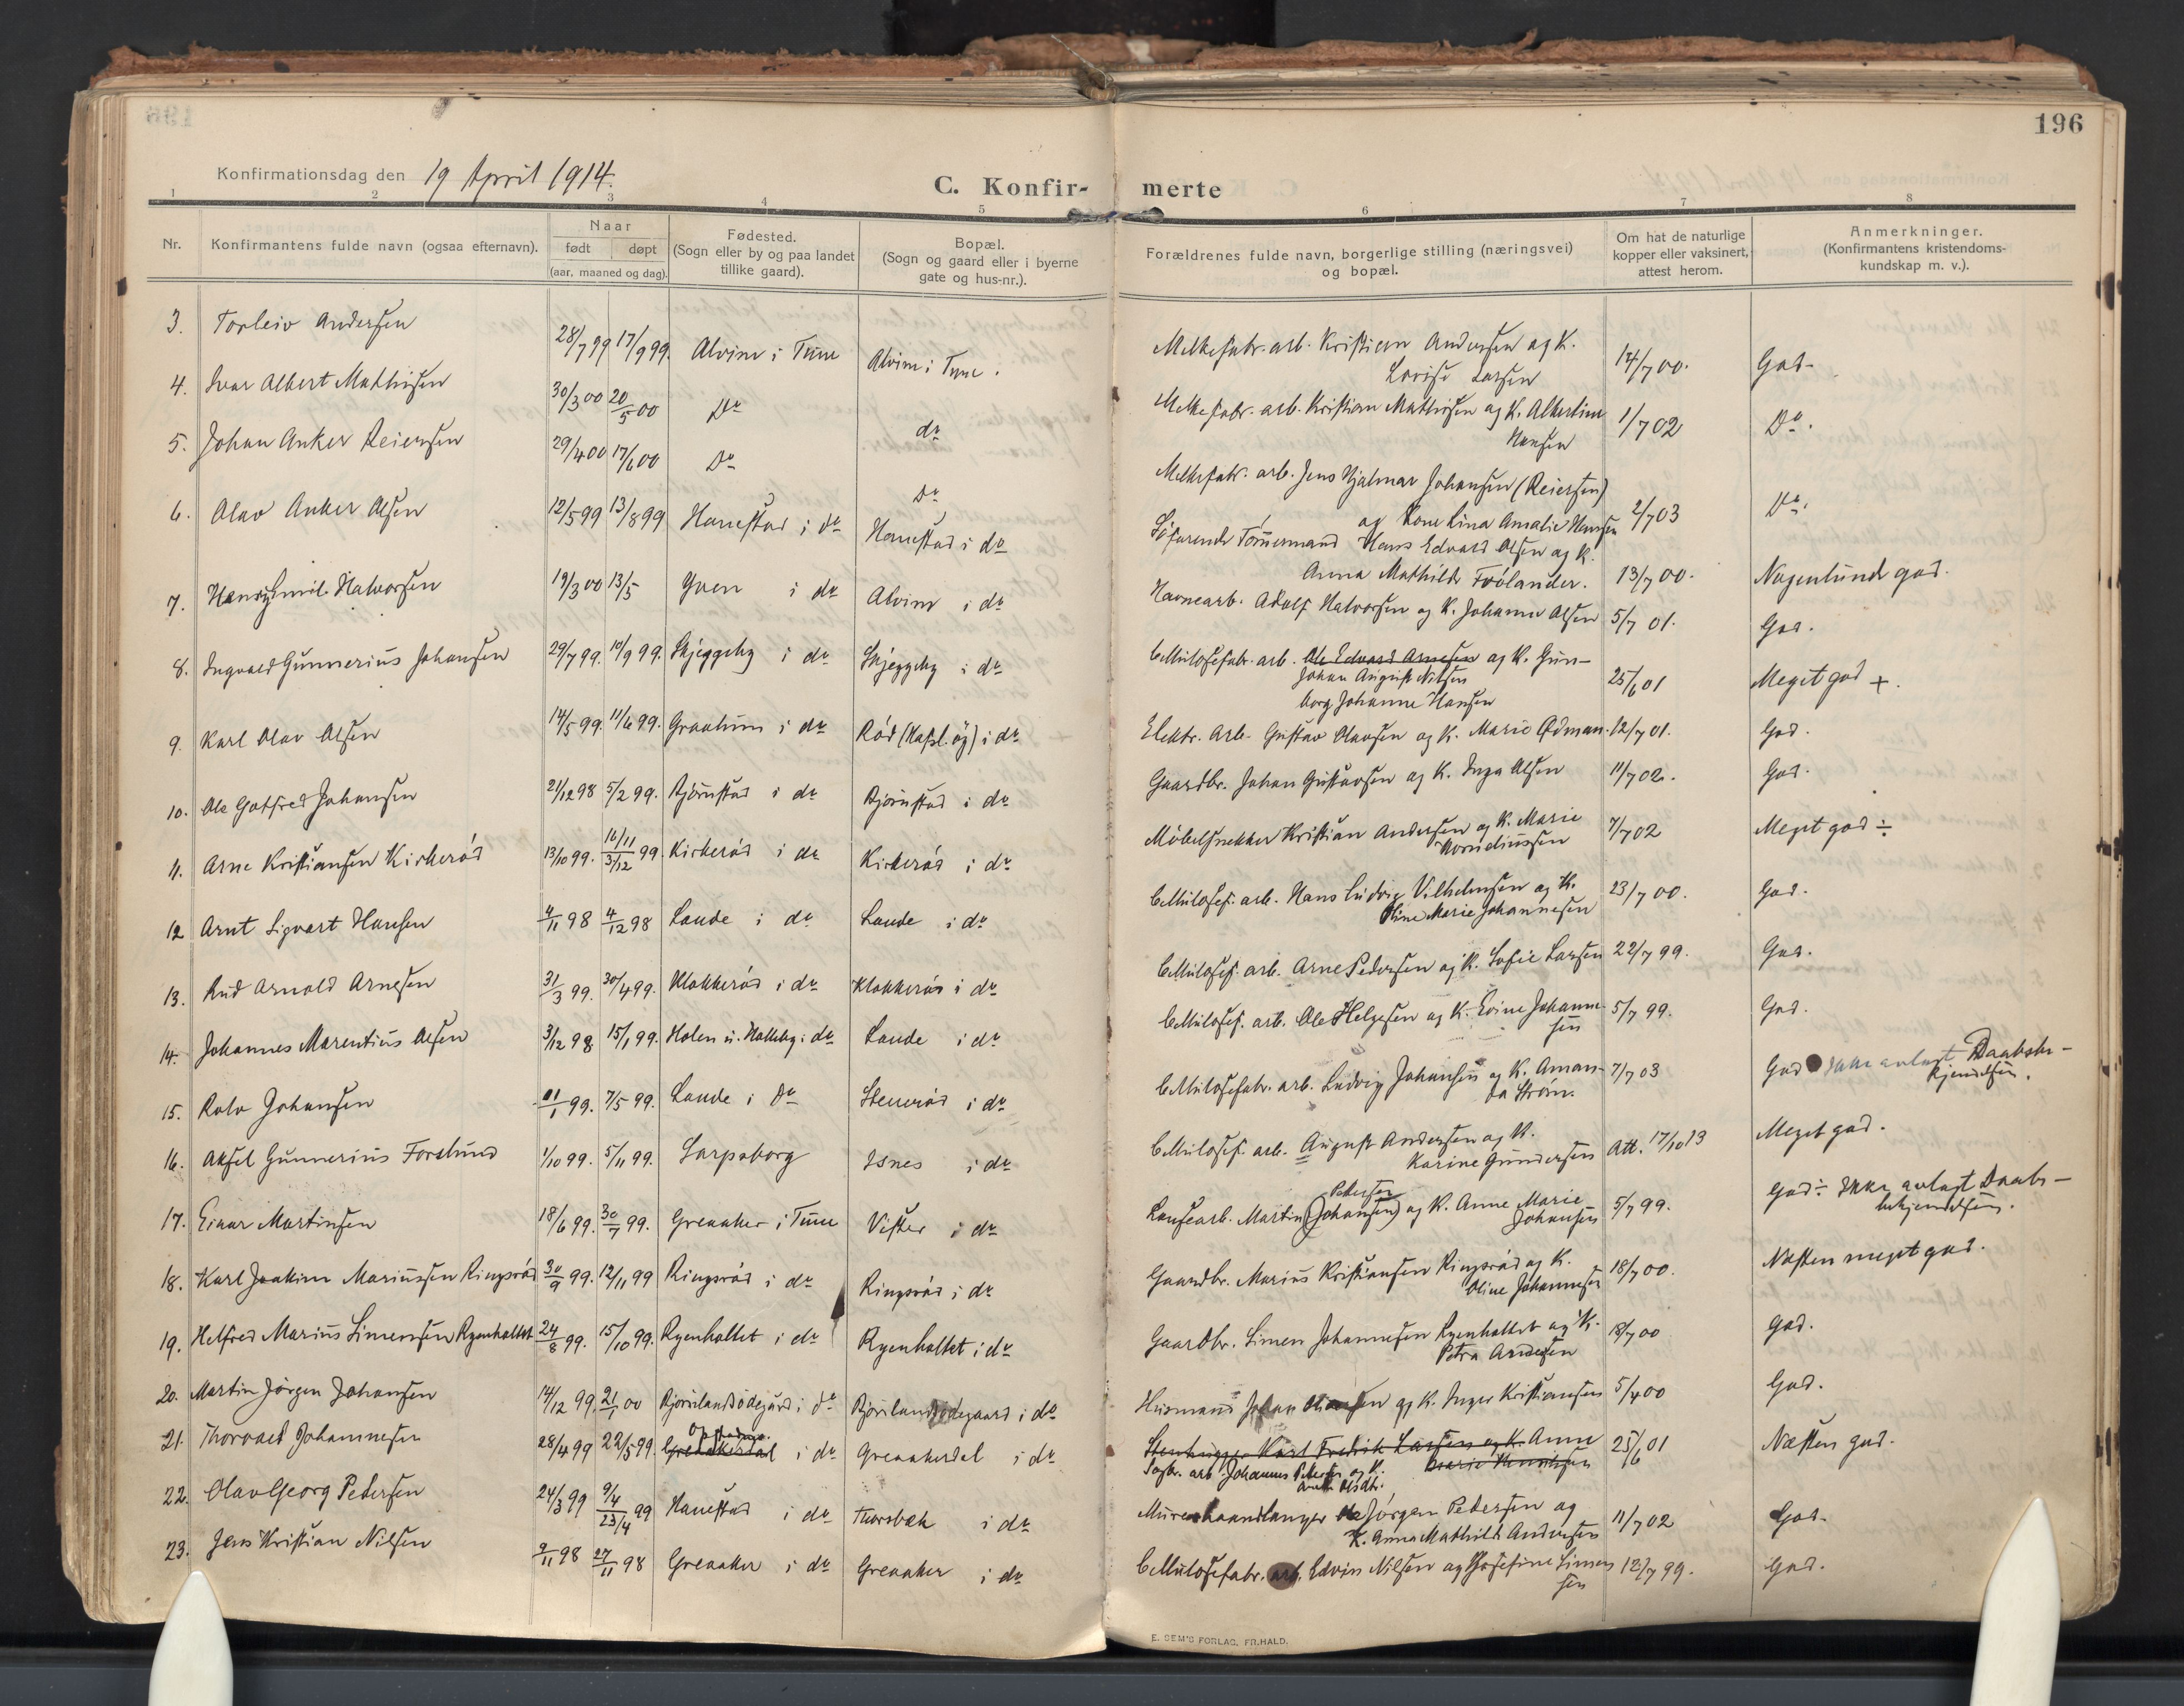 196
Konfirmationsdag den 19 April 1914.
C. Konfir- merte
1 2 3 4 5 6 7 8
Nr. Konfirmantens fulde navn (ogsaa efternavn). Naar født døpt (aar, maaned og dag). Fødested. (Sogn eller by og paa landet tillike gaard). Bopæl. (Sogn og gaard eller i byerne gate og hus-nr.). Forældrenes fulde navn, borgerlige stilling (næringsvei) og bopæl. Om hat de naturlige kopper eller vaksinert, attest herom. Anmerkninger. (Konfirmantens kristendoms- kundskap m. v.).
3. Torleiv Andersen 28/7 99 17/9 99. Alvim i Tune Alvim i Tune. Melkefabr. arb. Kristian Andersen og K. Lovise Larsen 14/7 00. God-
4. Ivar Albert Mathisen 30/3 00 20/5 00 Do do Melkefabr. arb. Kristian Mathisen og K. Albertine Hansen 1/7 02 Do.
5. Johan Anker Reiersen 29/4 00 17/6 00 Do Do Melkefabr. arb. Jens Hjalmar Johansen (Reiersen) og Kone Lina Amalie Hansen 2/7 03 Do.
6. Olav Anker Olsen 12/5 99 13/8 99 Hanestad i do Hanestad i do Søfarende Tømmermand Hans Edvard Olsen og K. Anna Mathilde Frölander. 13/7 00. Nogenlunde god.
7. Henry Emil Halvorsen 19/3 00 13/5 Yven i do Alvim i do Havnearb. Adolf Halvorsen og K. Johanne Olsen 5/7 01. God.
8. Ingvald Gunnerius Johansen 29/7 99. 10/9 99. Skjeggeby i do Skjeggeby i do Cellulosefabr. arb. Ole Edvard Arnesen og K. Gun-
Johan August Nilsen
borg Johanne Hansen 25/6 01 Meget god +.
9. Karl Olav Olsen 14/5 99. 11/6 99. Graatum i do Rød (Hasl. øy) i do Elektr. Arb. Gustav Olavsen og K. Marie Ødman. 12/7 01. God.
10. Ole Gotfred Johansen 21/12 98 5/2 99. Bjørnstad i do Bjørnstad i do Gaardbr. Johan Gustavsen og K. Inga Olsen 11/7 02. God.
11. Arne Kristiansen Kirkerød 13/10 99. 16/11 3/12 99. Kirkerød i do Kirkerød i do Møbelsnekker Kristian Andersen og K. Marie Korneliussen 7/7 02 Meget god ÷
12 Arnt Sigvart Hansen 4/11 98 4/12 98 Lande i do Lande i do Cellulosef. arb. Hans Ludvig Vilhelmsen og K. Oline Marie Johannesen 23/7 00. God.
13. Rud Arnold Arnesen 31/3 99. 30/4 99. Klokkerød i do Klokkerød i do Cellulosef. arb. Arne Pedersen og K. Sofie Larsen 22/7 99. God.
14. Johannes Marentius Olsen 3/12 98 15/1 99. Holen u. Valleby i do Lande i do Cellulosef. arb. Ole Helgesen og K. Evine Johanne-
sen 5/7 99. God.
15. Rolv Johansen 11/1 99. 7/5 99. Lande i Do Stenrød i do Cellulosefabr. arb. Ludvig Johansen og K. Aman-
da Strøm. 7/7 03 God ikke avlagt Daabsbe-
kjendelsen.
16. Aksel Gunnerius Forslund 1/10 99. 5/11 99. Sarpsborg Isnes i do Cellulosef. arb. August Andersen og K. Karine Gundersen Att. 17/10 13 Meget god.
17. Einar Martinsen 18/6 99. 30/7 99. Greaaker i Tune Vister i do Lansearb. Martin (Johansen) Pedersen og K. Anne Marie Johansen 5/7 99. God ÷ ikke avlagt Daabs-
bekjendelsen.
18. Karl Joakim Mariussen Ringsrød 30/9 99. 12/11 99 Ringsrød i do Ringsrød i do Gaardbr. Marius Kristiansen Ringsrød og K. Oline Johannesen 18/7 00. Næsten meget god.
19. Helfred Marius Simensen Ryenholtet 24/8 99. 15/10 99. Ryenholtet i do Ryenholtet i do Gaardbr. Simen Johannesen Ryenholtet og K. Petra Andersen 18/7 00 God.
20. Martin Jørgen Johansen 14/12 99. 21/1 00 Bjørnlandsødegård i do Bjørnlandsødegaard i do Husmand Johan Hansen og K. Inger Kristiansen 5/4 00 God.
21. Thorvald Johannesen 28/4 99 22/5 99. Greaakerdal Opstad i do Greaakerdal i do Stenhugger Karl Fredrik Larsen og K. Anne Marie Henriksen
Sagbr. arb. Johannes Pettersen og K. Olsdtr. 25/6 01 Næsten god.
22. Olav Georg Pedersen 24/3 99 9/4 23/4 99 Hanestad i do Thorsbæk i do Murerhaandlanger Ole Jørgen Pedersen og K. Anna Mathilde Andersen 11/7 02 God.
23. Jens Kristian Nilsen 9/11 98 27/11 98 Greaaker i do Greaaker i do Cellulosefabr. arb. Edvin Nilsen og Josefine Simen-
sen 12/7 99. God.
E. SEM'S FORLAG, FR.HALD.